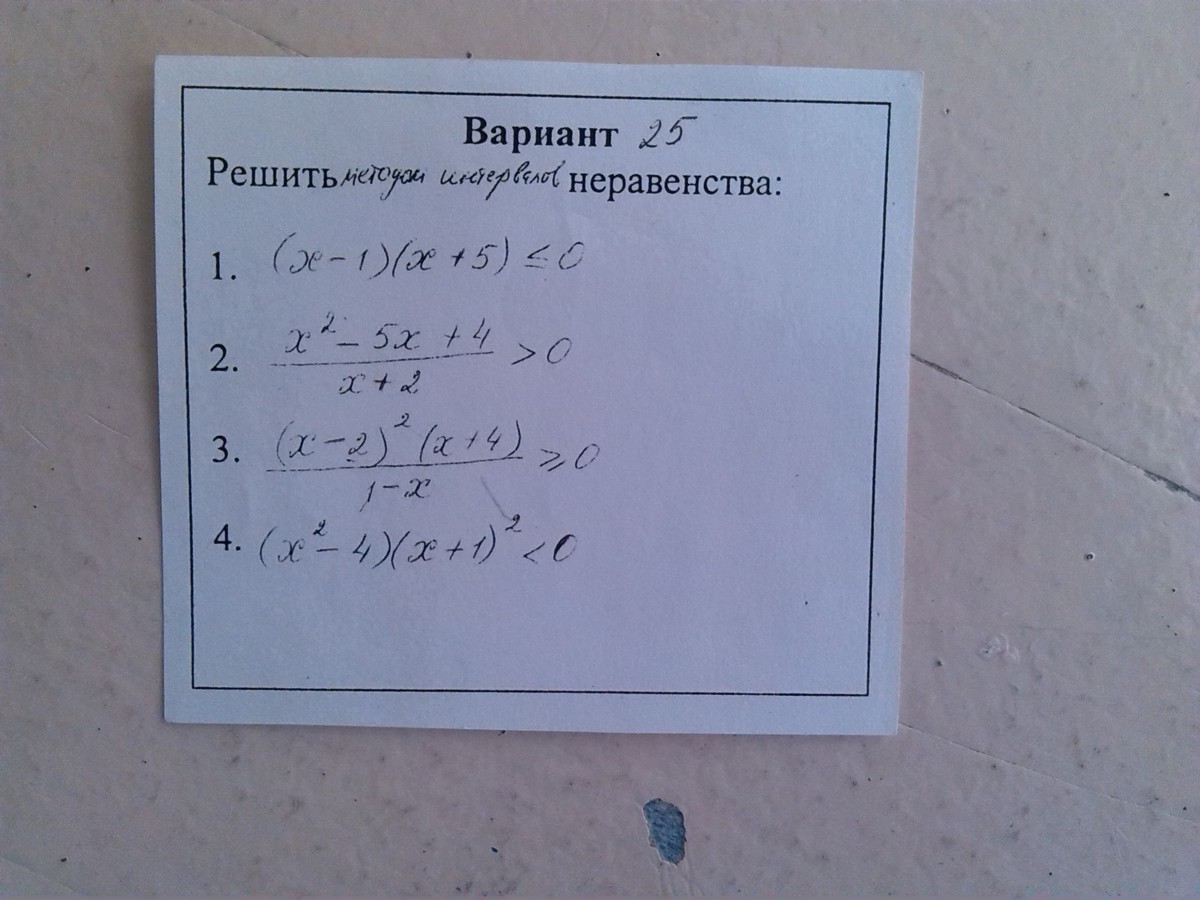 Вариант 25
Решить методом интервалов неравенства:
1. (x-1)(x+5) ≤ 0
2. \frac{x^2-5x+4}{x+2} > 0
3. \frac{(x-2)^2(x+4)}{1-x} ≥ 0
4. (x^2-4)(x+1)^2 < 0